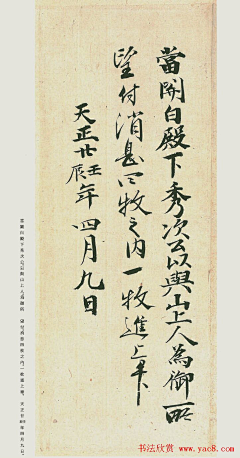 當関白殿下秀次公以與山上人為御所
望付消息四枚之内一枚進上畢
天正廿壬辰年四月九日
书法欣赏 www.yac8.com